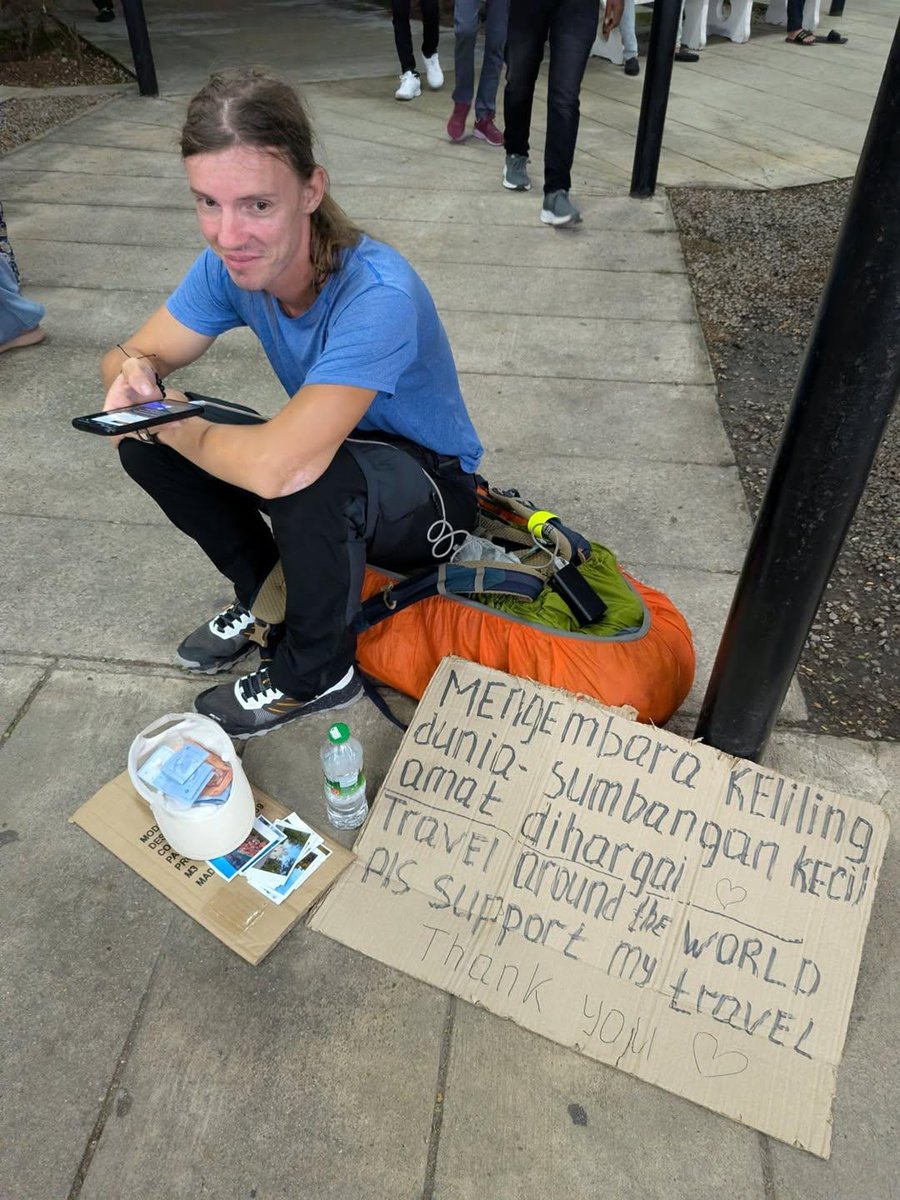 Mengembara KEliling
dunia- sumbangan kecil
amat dihargai
Travel around the WORLD
Pls support my travel
Thank you